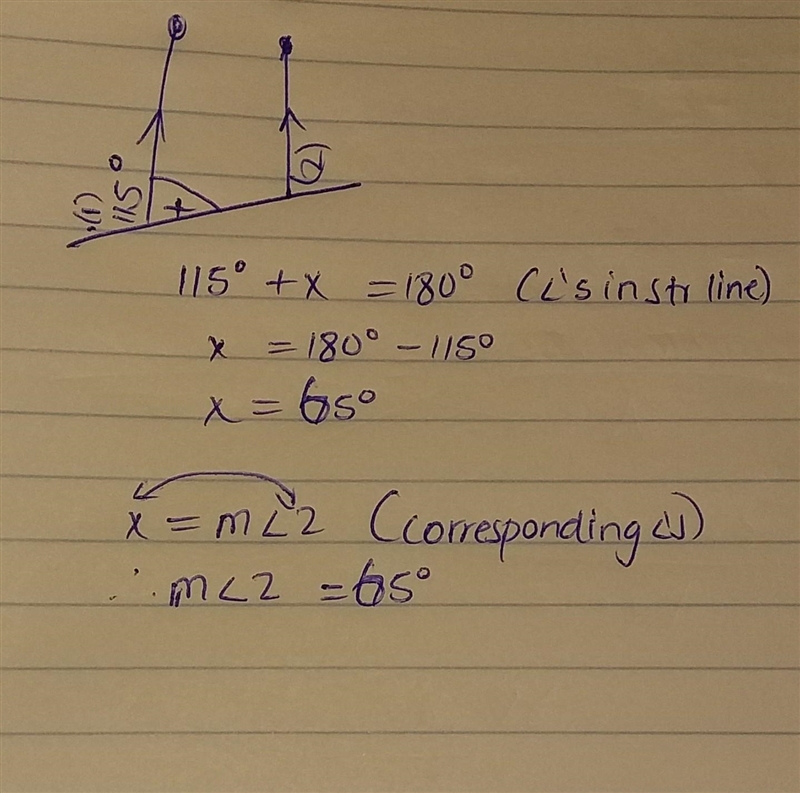 (1) 115° x (2)
115° + x = 180° (<'s in str line)
x = 180° - 115°
x = 65°
x = m<2 (corresponding <s)
∴ m<2 = 65°